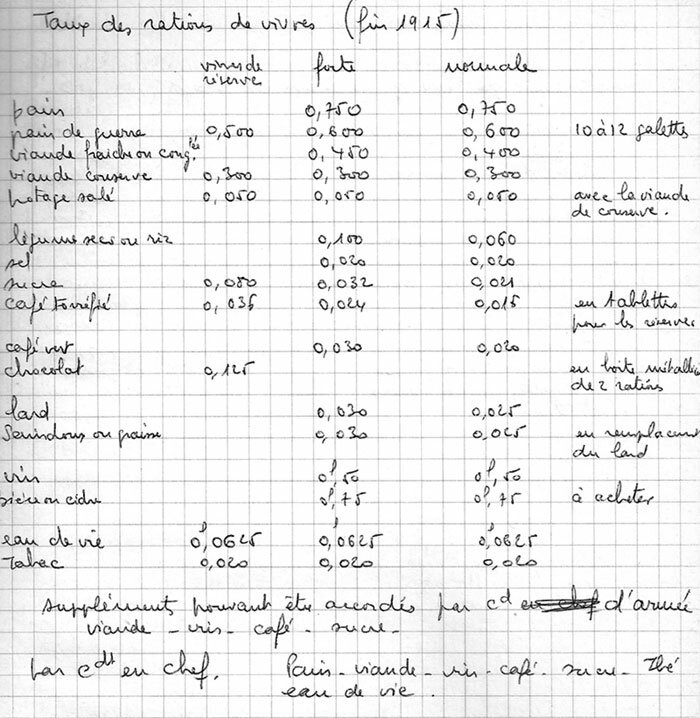 Taux des rations de vivres (fin 1915)
vivres de réserve forte normale
pain 0,750 0,750
pain de guerre 0,500 0,600 0,600 10 à 12 galettes
viande fraiche ou cong.lée 0,450 0,400
viande conserve 0,300 0,300 0,300
potage salé 0,050 0,050 0,050 avec la viande
de conserve.
légumes secs ou riz 0,100 0,060
sel 0,020 0,020
sucre 0,080 0,032 0,021
café torréfié 0,036 0,024 0,016 en tablettes
pour les réserves
café vert 0,030 0,020
chocolat 0,125 en boite métallique
de 2 rations
lard 0,030 0,025
Saindoux ou graisse 0,030 0,025 en remplacement
du lard
vin 0l,50 0l,50
bière ou cidre 0l,75 0l,75 à acheter
eau de vie 0l,0625 0l,0625 0l,0625
Tabac 0,020 0,020 0,020
suppléments pouvant être accordés par cd d'armée
viande - vin - café - sucre -
par cdt en chef. Pain - viande - vin - café - sucre - Thé
eau de vie.